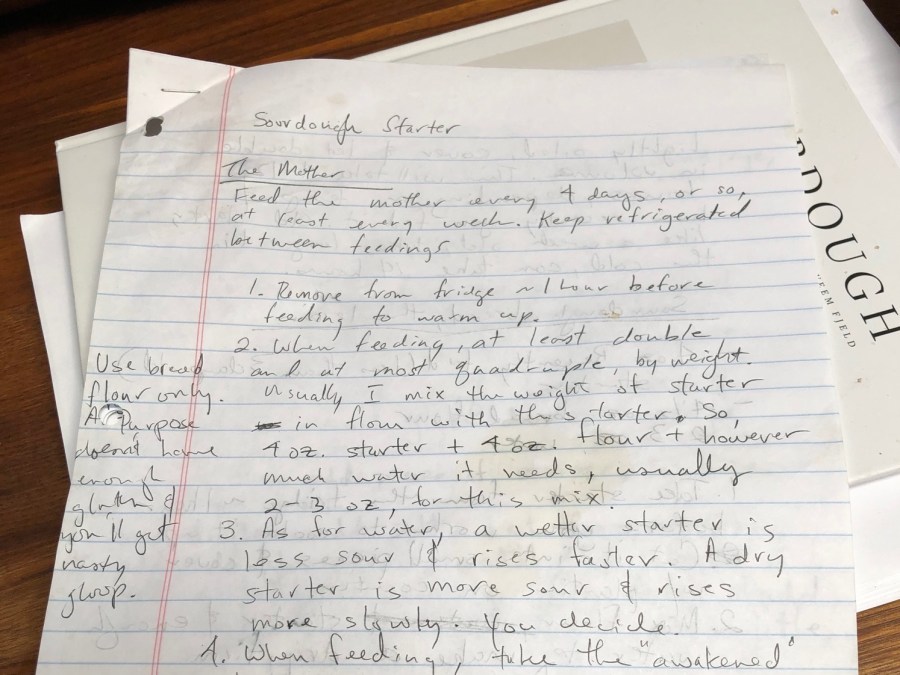 Sourdough Starter
The Mother
Feed the mother every 4 days, or so,
at least every week. Keep refrigerated
between feedings
1. Remove from fridge ~1 hour before
feeding to warm up.
2. When feeding, at least double
and at most quadruple, by weight.
Usually, I mix the weight of starter
in flour with the starter. So,
4 oz. starter + 4 oz. flour + however
much water it needs, usually
2-3 oz, for this mix.
3. As for water, a wetter starter is
less sour & rises faster. A dry
starter is more sour & rises
more slowly. You decide.
4. When feeding, take the "awakened"
Use bread
flour only.
All Purpose
doesn't have
enough
gluten &
you'll get
nasty
gloop.
DOUGH
EEM FJELD